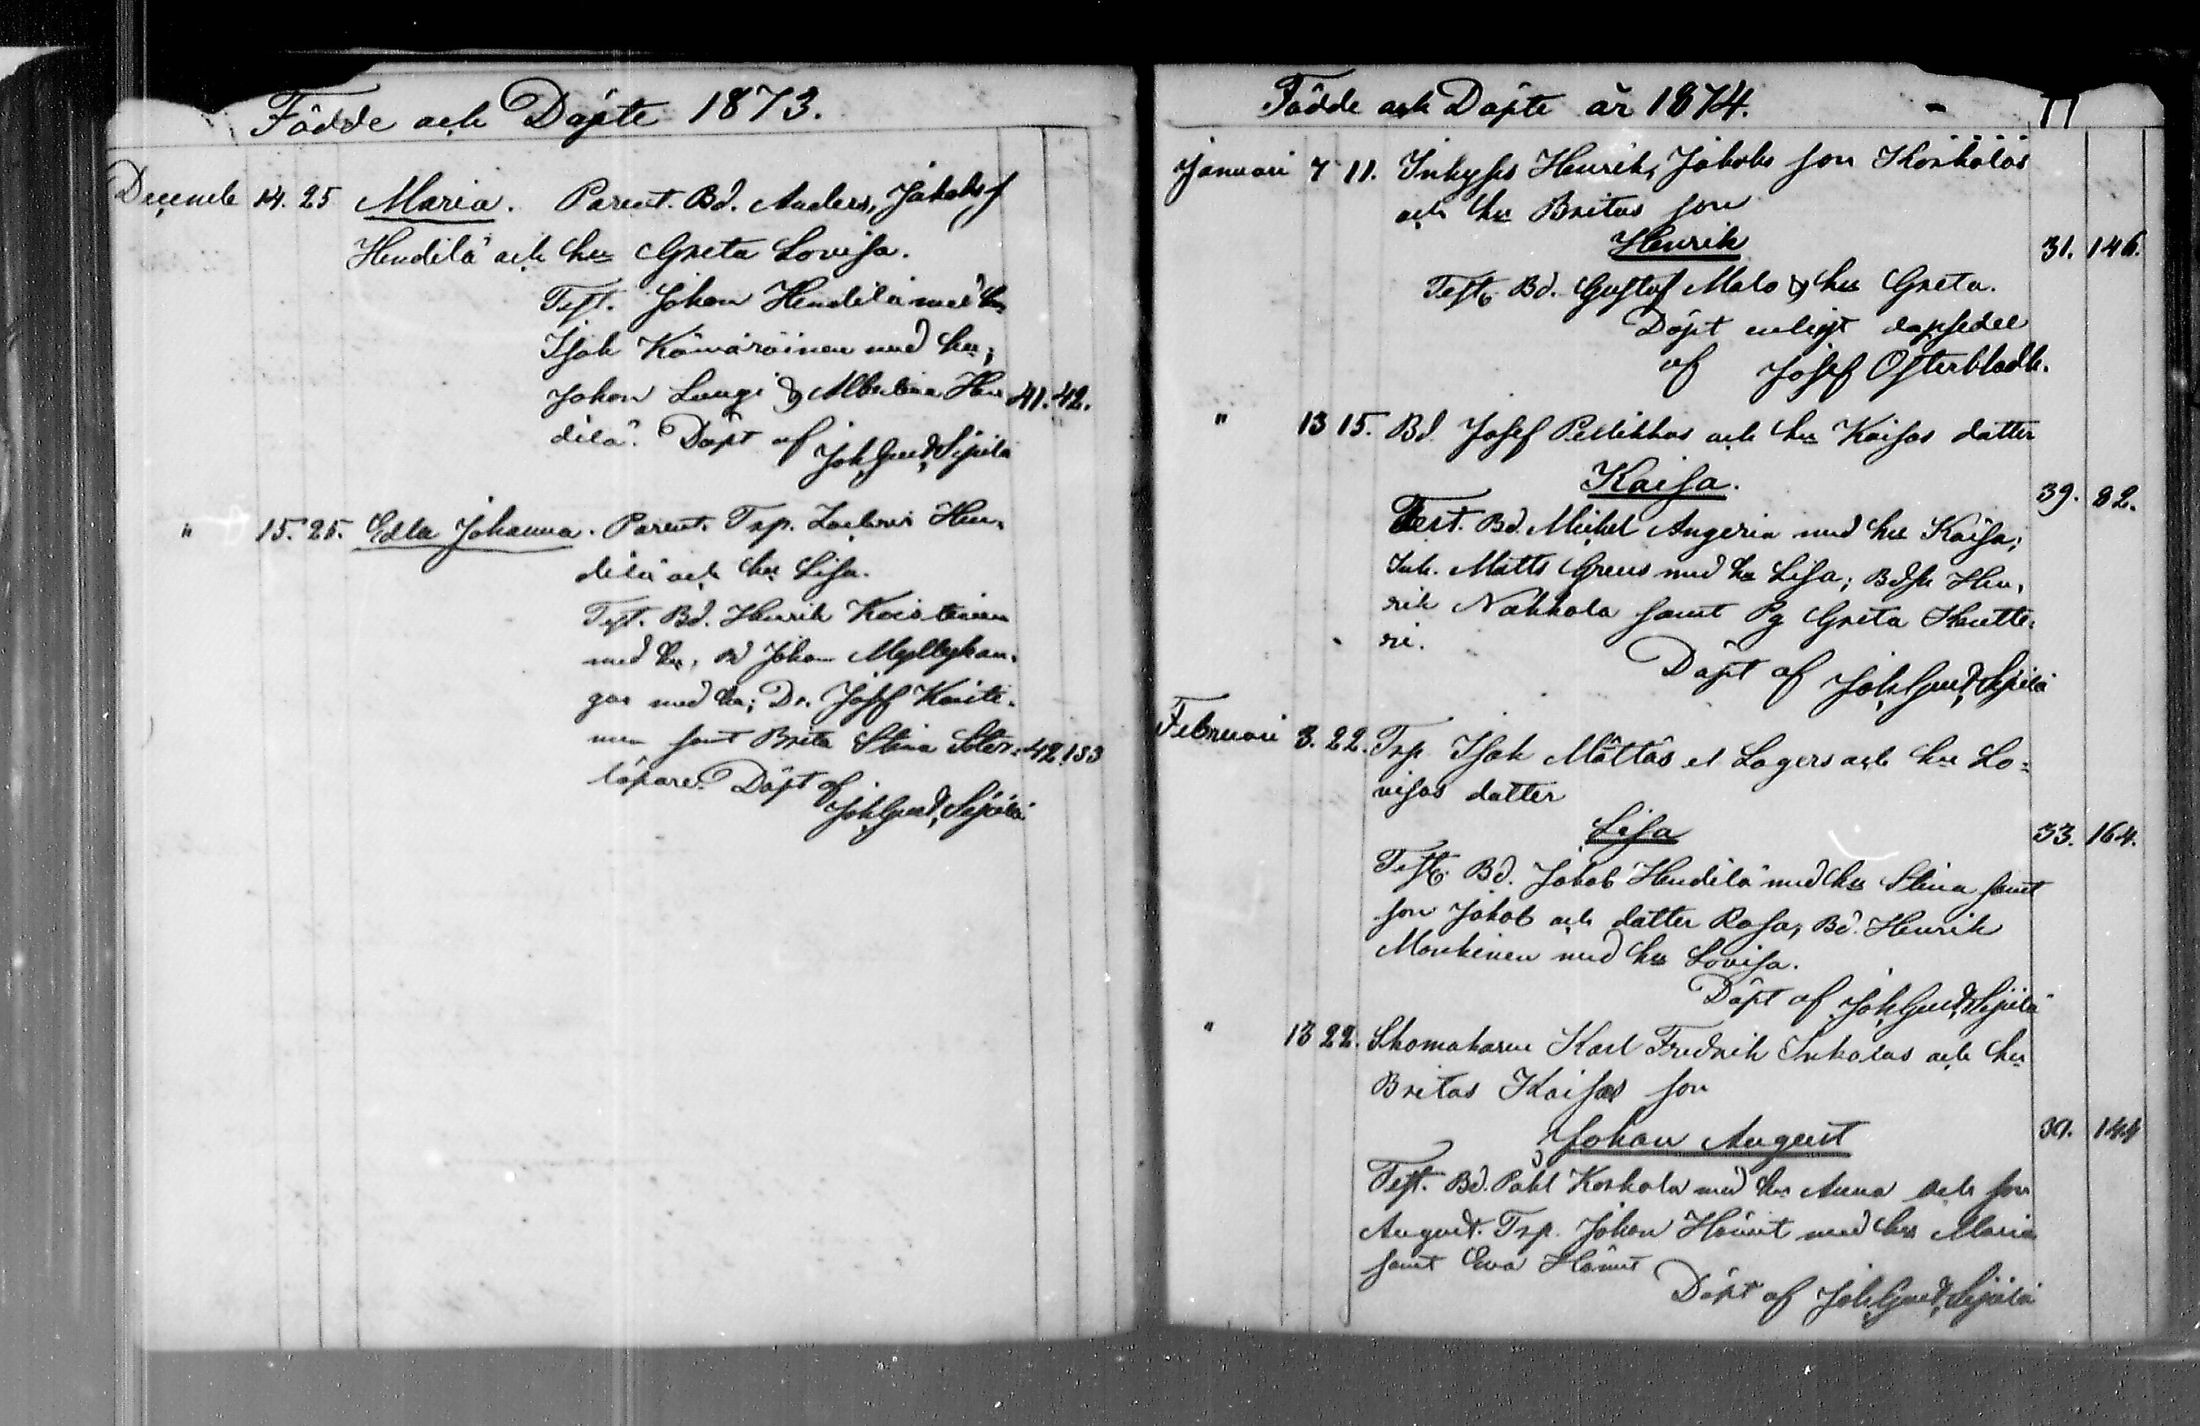 Födde och Döpte 1873.
Decemb 14. 25 Maria. Parent. Bd. Anders, Jakobs f
Hendilä och hu Greta Lovisa.
Test. Johan Hendilä med hu
Isak Kämäräinen med hu;
Johan Laugi & Albertina Hen 41. 42.
dilä. Döpt af Joh. Gust. Sipilä
" 15. 25. Edla Johanna. Parent. Trp. Zachris Hen,
dilä och hu Lisa.
Test. Bd. Henrik Koistinen
med hu, Bd Johan Myllykan,
gas med hu; Dr. Josef Koisti,
nen samt Brita Stina Söder, 42. 153
löpare. Döpt af
Joh. Gust. Sipilä
Födde och Döpte år 1874. 11
Januari 7 11. Inhyses Henrik, Jakobs son Koskolas
och hu Britas son
Henrik 31. 146.
Test. Bd. Gustaf Malo & hu Greta.
Döpt enligt dopsedel
af Josef Österbladh.
" 13 15. Bd. Josef Pellikkas och hu Kaisas dotter
Kaisa. 39. 82.
Test. Bd. Mickel Angeria med hu Kaisa;
Inh. Matts Greus med hu Lisa; Bdsn Hen,
rik Nakkala samt Pg Greta Kantte,
ri.
Döpt af Joh. Gust. Sipilä
Februari 3. 22. Trp. Isak Mättäs el Lagers och hu Lo-
visas dotter
Lisa 33. 164.
Test. Bd. Jakob Hendilä med hu Stina samt
son Jakob och dotter Rosa; Bd. Henrik
Monkinen med hu Lovisa.
Döpt af Joh. Gust. Sipilä
" 13 22. Skomakaren Karl Fredrik Inkalas och hu
Britas Kaisas son
Johan August 39. 144
Test. Bd. Påhl Koskola med hu Anna och son
August. Trp. Johan Hannt med hu Maria
samt Eva Hannt
Döpt af Joh. Gust. Sipilä